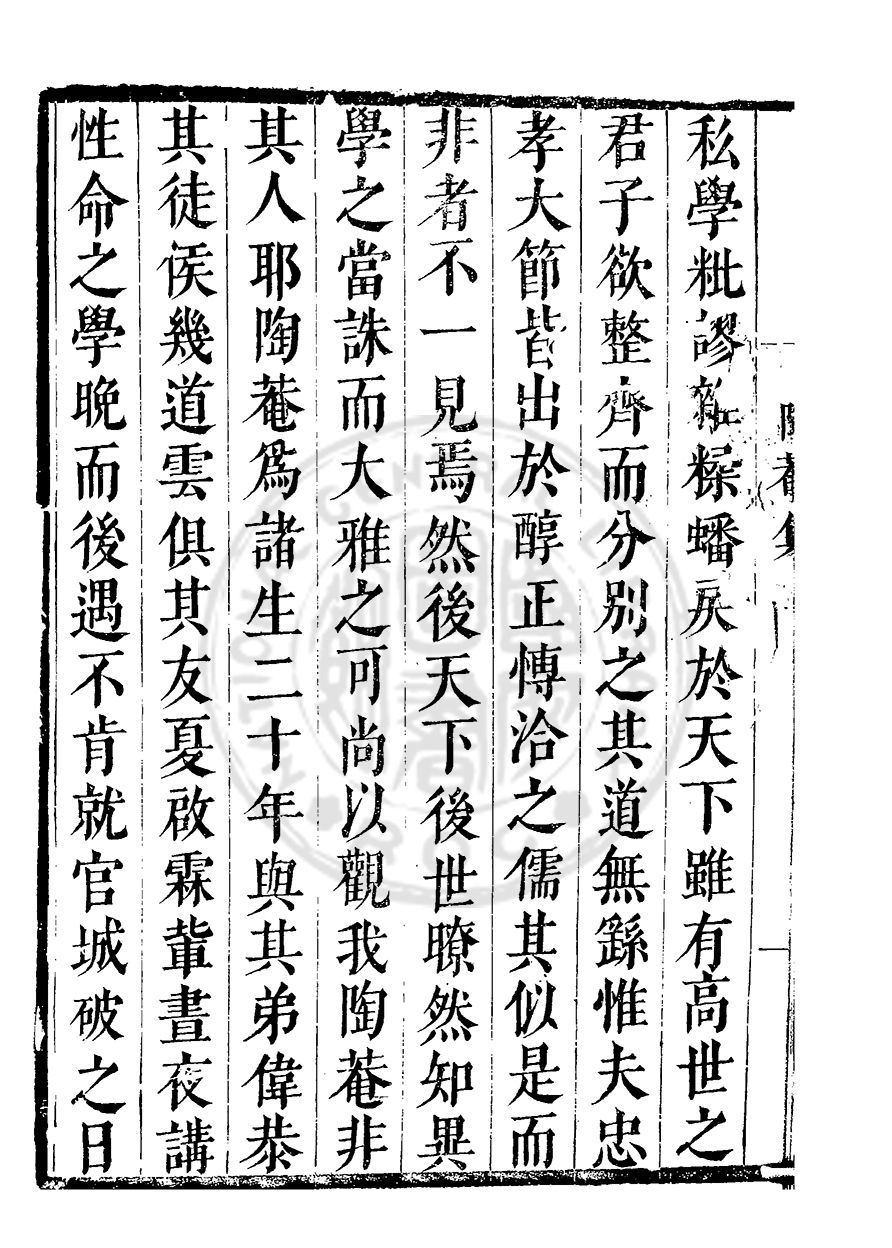 私學粃謬雜糅蟠戾於天下雖有高世之
君子欲整齊而分別之其道無繇惟夫忠
孝大節皆出於醇正愽洽之儒其似是而
非者不一見焉然後天下後世暸然知異
學之當誅而大雅之可尚以觀我陶菴非
其人耶陶菴爲諸生二十年與其弟偉恭
其徒侯幾道雲俱其友夏啟霖軰晝夜講
性命之學晚而後遇不肯就官城破之日
陶菴集